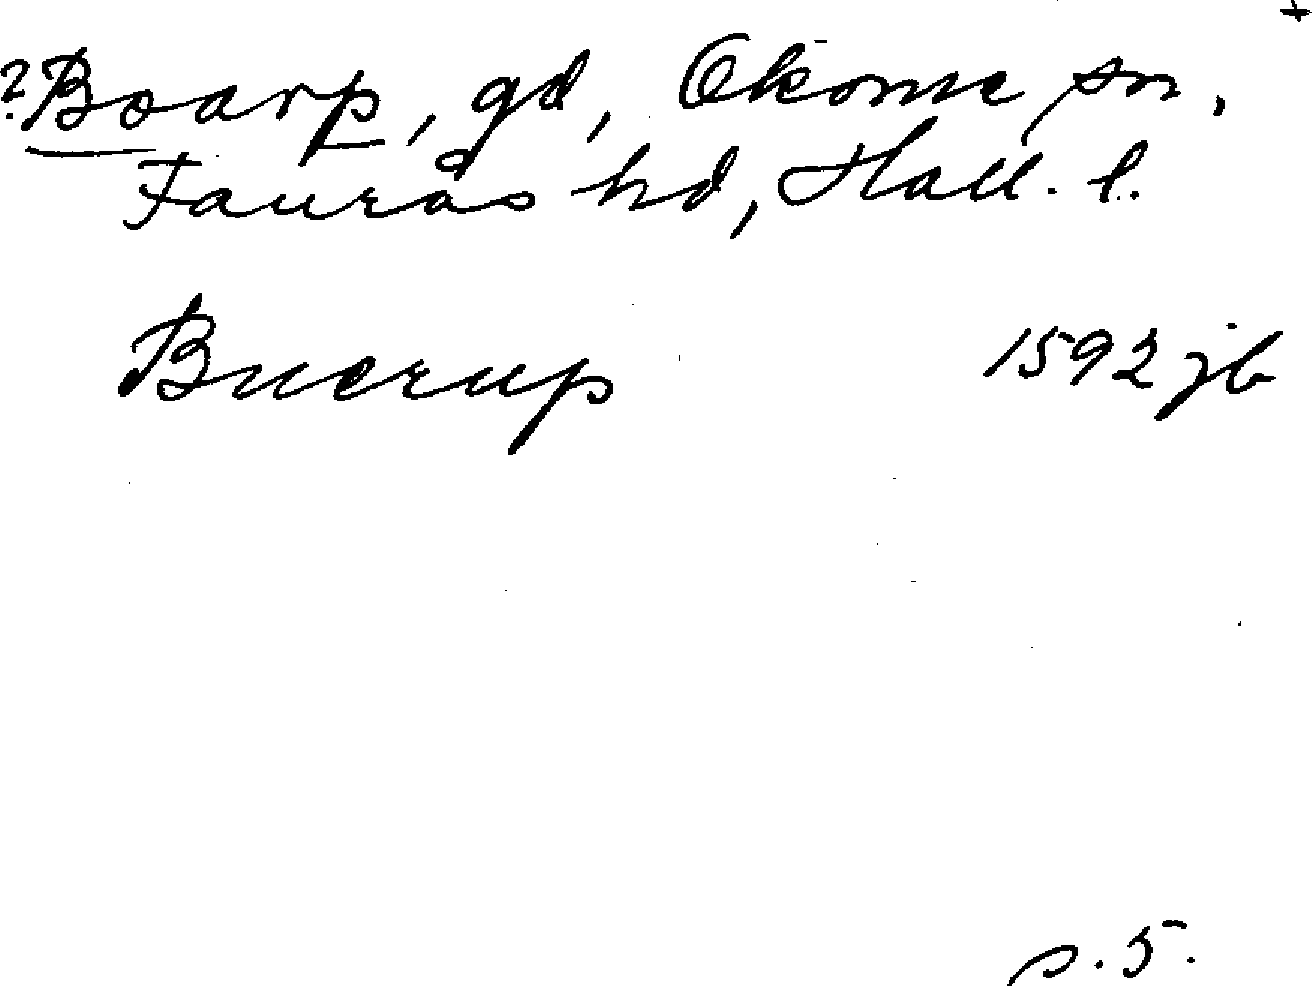 +
?Boarp, gd, Okome sn,
Faurås hd, Hall. l.
Bucrup 1592 jb
s. 5.